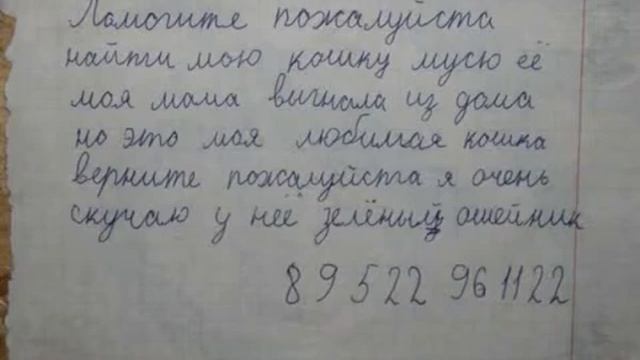 Памогите пожалуйста
найти мою кошку мусю её
моя мама вигнала из дома
но это моя любимая кошка
верните пожалуйста я очень
скучаю у неё зелёный ошейник
89522961122